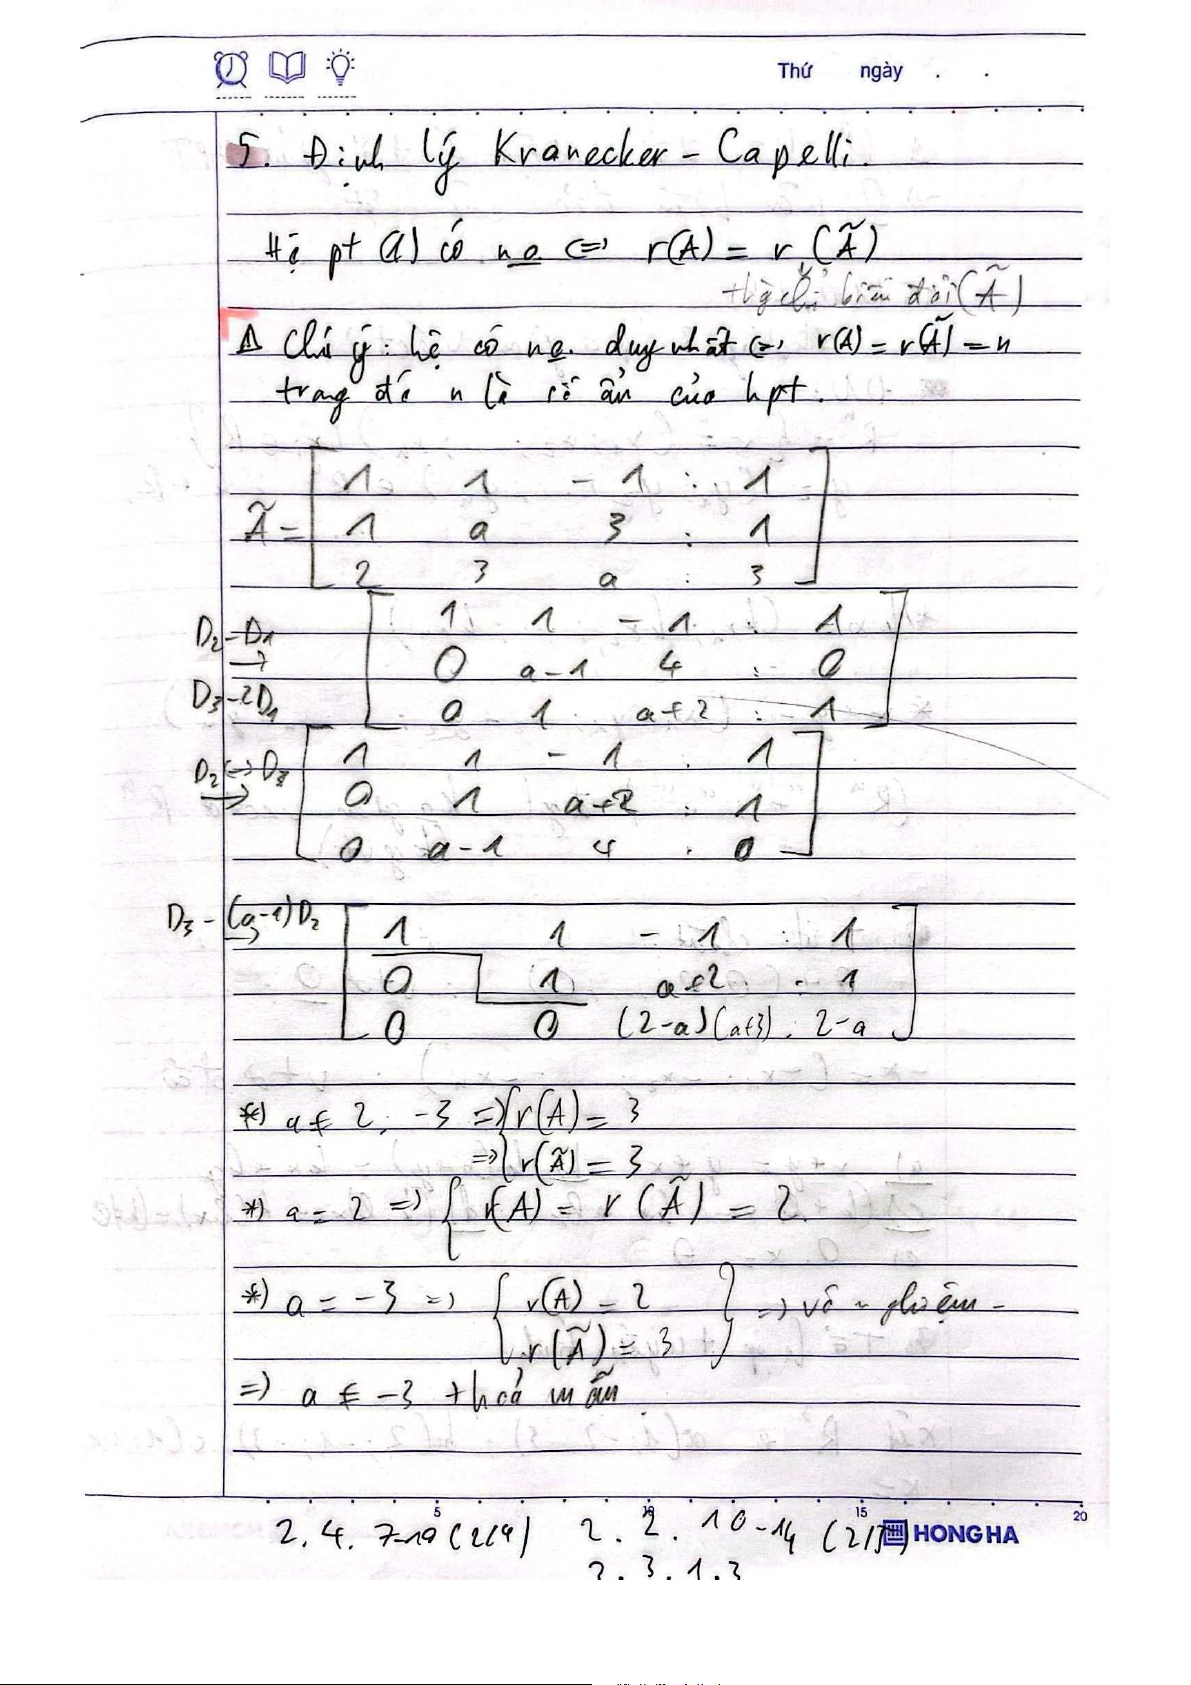 Thứ ngày . .
5. Định lý Kranecker - Capelli.
Hệ pt (1) có no <=> r(A) = r(Ã)
biến đổi (Ã)
Chú ý: hệ có no duy nhất <=> r(A) = r(Ã) = n
trong đó n là số ẩn của hpt.
Ã = [ 1 1 -1 : 1
1 a 3 : 1
2 3 a : 3 ]
D2-D1 → D3-2D1 [ 1 1 -1 : 1
0 a-1 4 : 0
0 1 a+2 : 1 ]
D2 <-> D3 → [ 1 1 -1 . 1
0 1 a+2 : 1
0 a-1 4 . 0 ]
D3 - (a-1)D2 → [ 1 1 -1 : 1
0 1 a+2 : 1
0 0 (2-a)(a+3) . 2-a ]
*) a ≠ 2, -3 => { r(A) = 3
=> { r(Ã) = 3
*) a = 2 => { r(A) = r(Ã) = 2.
*) a = -3 => { r(A) = 2 } => vô nghiệm
r(Ã) = 3
=> a ≠ -3 thoả mãn
5 10 15 20
2.4. 7-19 (214) 2.2. 10-14
HONG HA
2.3.1.3